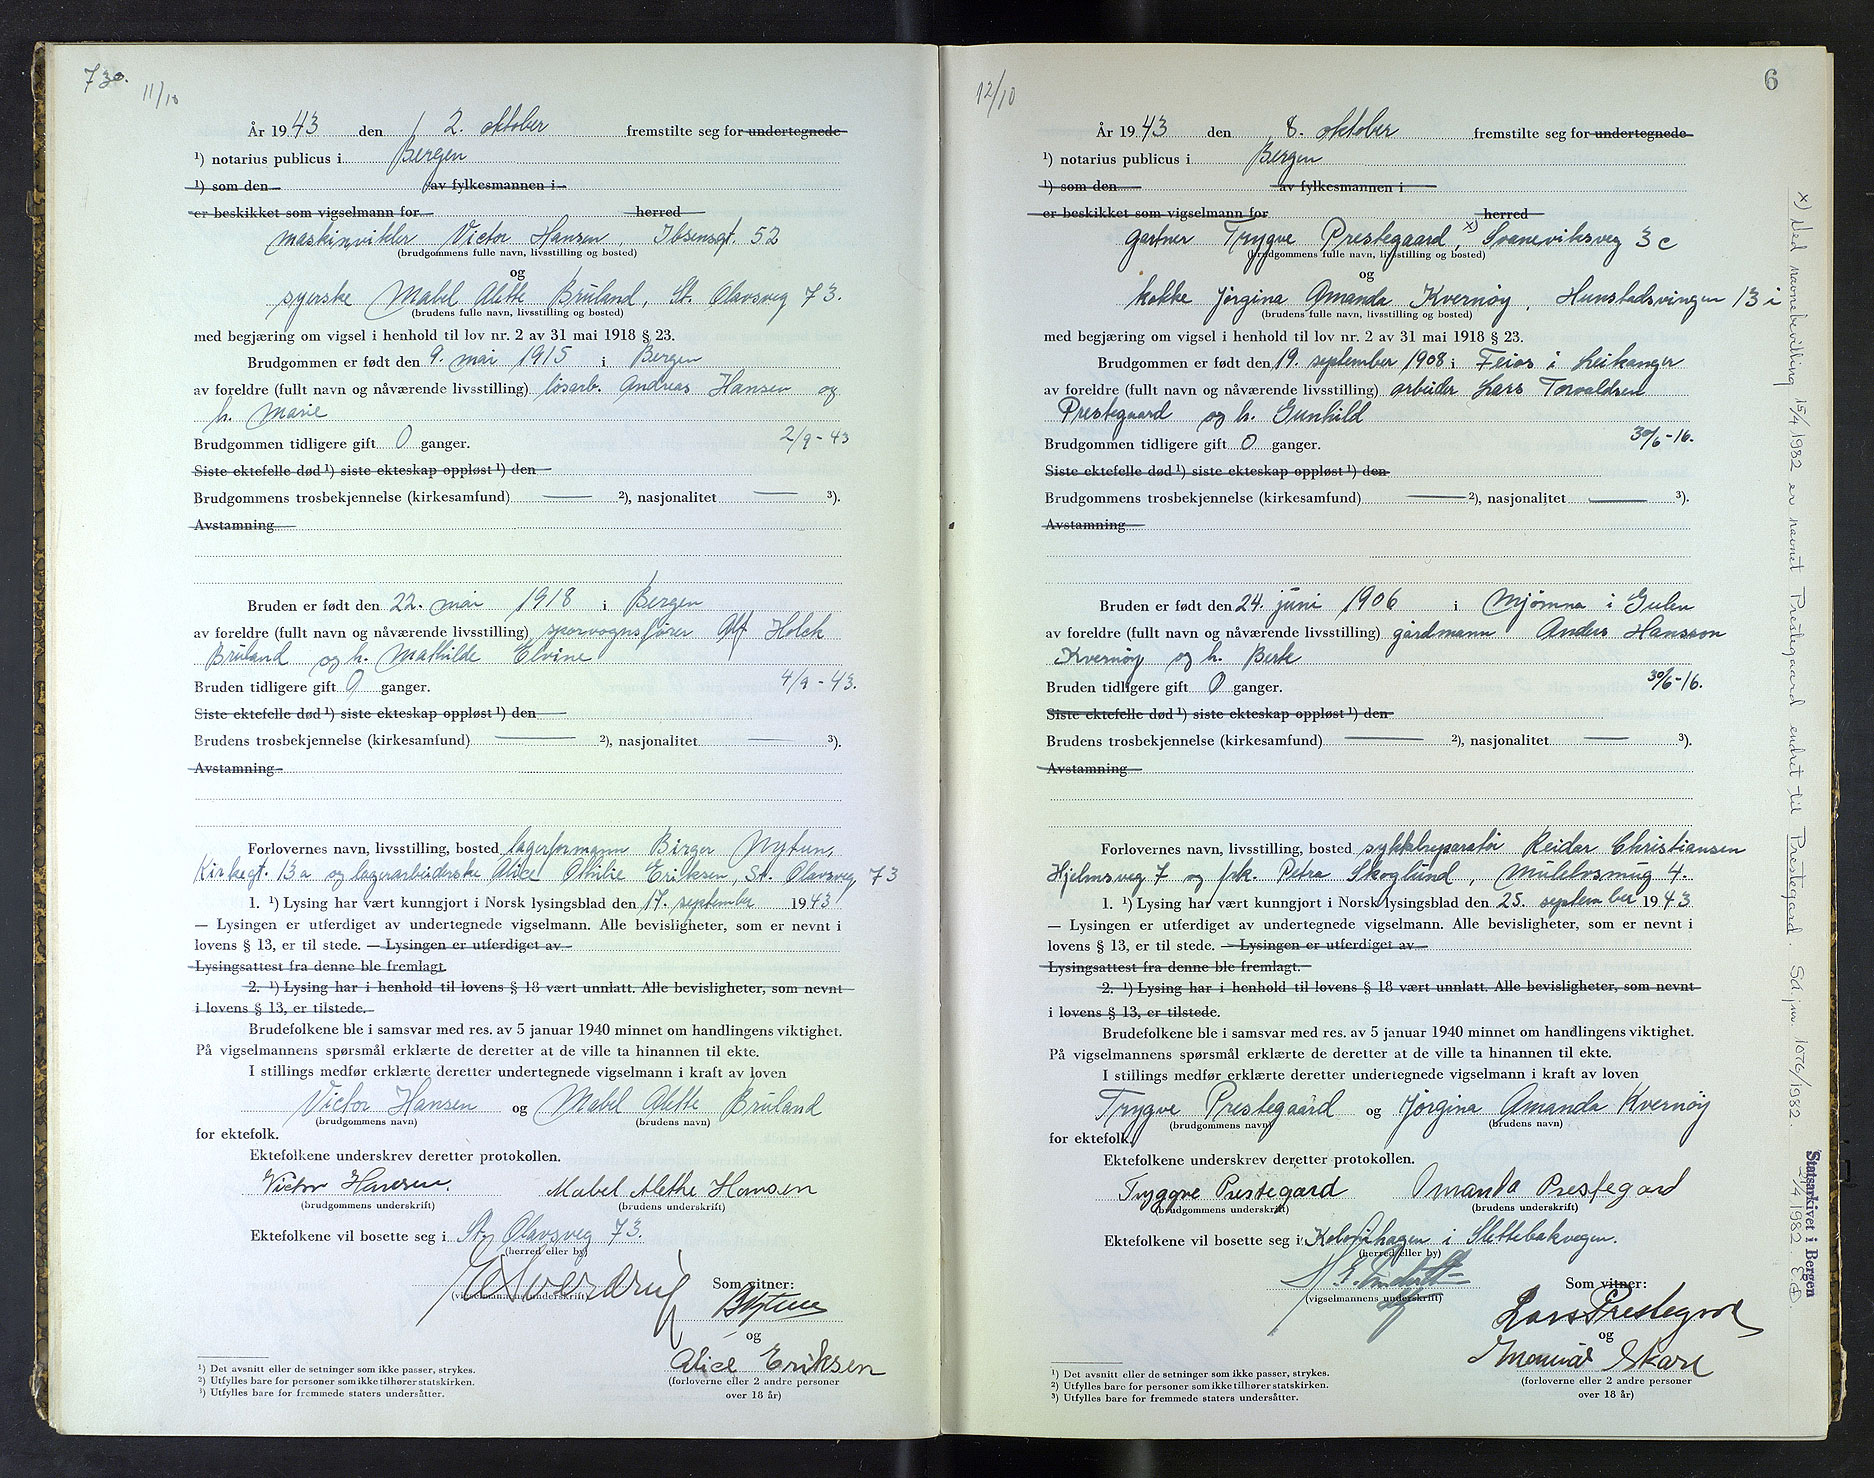 730.
11/10
År 1943 den 2. oktober fremstilte seg for undertegnede
¹) notarius publicus i Bergen
¹) som den av fylkesmannen i
er beskikket som vigselmann for herred
maskinvikler Victor Hansen, Ibsensgt. 52
(brudgommens fulle navn, livsstilling og bosted)
og
syerske Mabel Alette Bruland, St. Olavsveg 73.
(brudens fulle navn, livsstilling og bosted)
med begjæring om vigsel i henhold til lov nr. 2 av 31 mai 1918 § 23.
Brudgommen er født den 9. mai 1915 i Bergen
av foreldre (fullt navn og nåværende livsstilling) løsarb. Andreas Hansen og
h. Marie
Brudgommen tidligere gift 0 ganger. 2/9-43
Siste ektefelle død ¹) siste ekteskap oppløst ¹) den
Brudgommens trosbekjennelse (kirkesamfund) — ²), nasjonalitet — ³).
Avstamning
Bruden er født den 22. mai 1918 i Bergen
av foreldre (fullt navn og nåværende livsstilling) sporvognsfører Alf Holck
Bruland og h. Mathilde Elvine
Bruden tidligere gift 0 ganger. 4/9-43.
Siste ektefelle død ¹) siste ekteskap oppløst ¹) den
Brudens trosbekjennelse (kirkesamfund) — ²), nasjonalitet — ³).
Avstamning
Forlovernes navn, livsstilling, bosted lagerformann Birger Nytun,
Kirkegt. 13a og lagerarbeiderske Alice Othilie Eriksen, St. Olavsveg 73
1. ¹) Lysing har vært kunngjort i Norsk lysingsblad den 17. september 1943
— Lysingen er utferdiget av undertegnede vigselmann. Alle bevisligheter, som er nevnt i
lovens § 13, er til stede. — Lysingen er utferdiget av
Lysingsattest fra denne ble fremlagt.
2. ¹) Lysing har i henhold til lovens § 18 vært unnlatt. Alle bevisligheter, som nevnt
i lovens § 13, er tilstede.
Brudefolkene ble i samsvar med res. av 5 januar 1940 minnet om handlingens viktighet.
På vigselmannens spørsmål erklærte de deretter at de ville ta hinannen til ekte.
I stillings medfør erklærte deretter undertegnede vigselmann i kraft av loven
Victor Hansen og Mabel Alette Bruland
(brudgommens navn) (brudens navn)
for ektefolk.
Ektefolkene underskrev deretter protokollen.
Victor Hansen. Mabel Alethe Hansen
(brudgommens underskrift) (brudens underskrift)
Ektefolkene vil bosette seg i St. Olavsveg 73.
(herred eller by)
Som vitner:
(vigselmannens underskrift)
BNytun
og
Alice Eriksen
(forloverne eller 2 andre personer
over 18 år)
¹) Det avsnitt eller de setninger som ikke passer, strykes.
²) Utfylles bare for personer som ikke tilhører statskirken.
³) Utfylles bare for fremmede staters undersåtter.
12/10
6
År 1943 den 8. oktober fremstilte seg for undertegnede
¹) notarius publicus i Bergen
¹) som den av fylkesmannen i
er beskikket som vigselmann for herred
gartner Trygve Prestegaard, x) Svaneviksveg 3c
(brudgommens fulle navn, livsstilling og bosted)
og
kokke Jørgina Amanda Kvernøy, Hunstadsvingen 13 i
(brudens fulle navn, livsstilling og bosted)
med begjæring om vigsel i henhold til lov nr. 2 av 31 mai 1918 § 23.
Brudgommen er født den 19. september 1908 i Feios i Leikanger
av foreldre (fullt navn og nåværende livsstilling) arbeider Lars Torvaldsen
Prestegaard og h. Gunhild
Brudgommen tidligere gift 0 ganger. 30/6-16.
Siste ektefelle død ¹) siste ekteskap oppløst ¹) den
Brudgommens trosbekjennelse (kirkesamfund) — ²), nasjonalitet — ³).
Avstamning
Bruden er født den 24. juni 1906 i Mjømna i Gulen
av foreldre (fullt navn og nåværende livsstilling) gårdmann Anders Hansson
Kvernøy og h. Berte
Bruden tidligere gift 0 ganger. 30/6-16.
Siste ektefelle død ¹) siste ekteskap oppløst ¹) den
Brudens trosbekjennelse (kirkesamfund) — ²), nasjonalitet — ³).
Avstamning
Forlovernes navn, livsstilling, bosted sykkelreparatør Reidar Christiansen
Hjelmsveg 7 og frk. Petra Skoglund, Mulelvsmug 4.
1. ¹) Lysing har vært kunngjort i Norsk lysingsblad den 25. september 1943
— Lysingen er utferdiget av undertegnede vigselmann. Alle bevisligheter, som er nevnt i
lovens § 13, er til stede. — Lysingen er utferdiget av
Lysingsattest fra denne ble fremlagt.
2. ¹) Lysing har i henhold til lovens § 18 vært unnlatt. Alle bevisligheter, som nevnt
i lovens § 13, er tilstede.
Brudefolkene ble i samsvar med res. av 5 januar 1940 minnet om handlingens viktighet.
På vigselmannens spørsmål erklærte de deretter at de ville ta hinannen til ekte.
I stillings medfør erklærte deretter undertegnede vigselmann i kraft av loven
Trygve Prestegaard og Jørgina Amanda Kvernøy
(brudgommens navn) (brudens navn)
for ektefolk.
Ektefolkene underskrev deretter protokollen.
Tryggve Prestegard Amanda Prestegard
(brudgommens underskrift) (brudens underskrift)
Ektefolkene vil bosette seg i Kolonihagen i Slettebakvegen.
(herred eller by)
Som vitner:
(vigselmannens underskrift)
Lars Prestegard
og
Skare
(forloverne eller 2 andre personer
over 18 år)
¹) Det avsnitt eller de setninger som ikke passer, strykes.
²) Utfylles bare for personer som ikke tilhører statskirken.
³) Utfylles bare for fremmede staters undersåtter.
x) Ved navnebevilling 15/4 1982 er navnet Prestegaard endret til Prestegard. Sd. jnr. 1076/1982.
Statsarkivet i Bergen
21/4 1982. E.D.